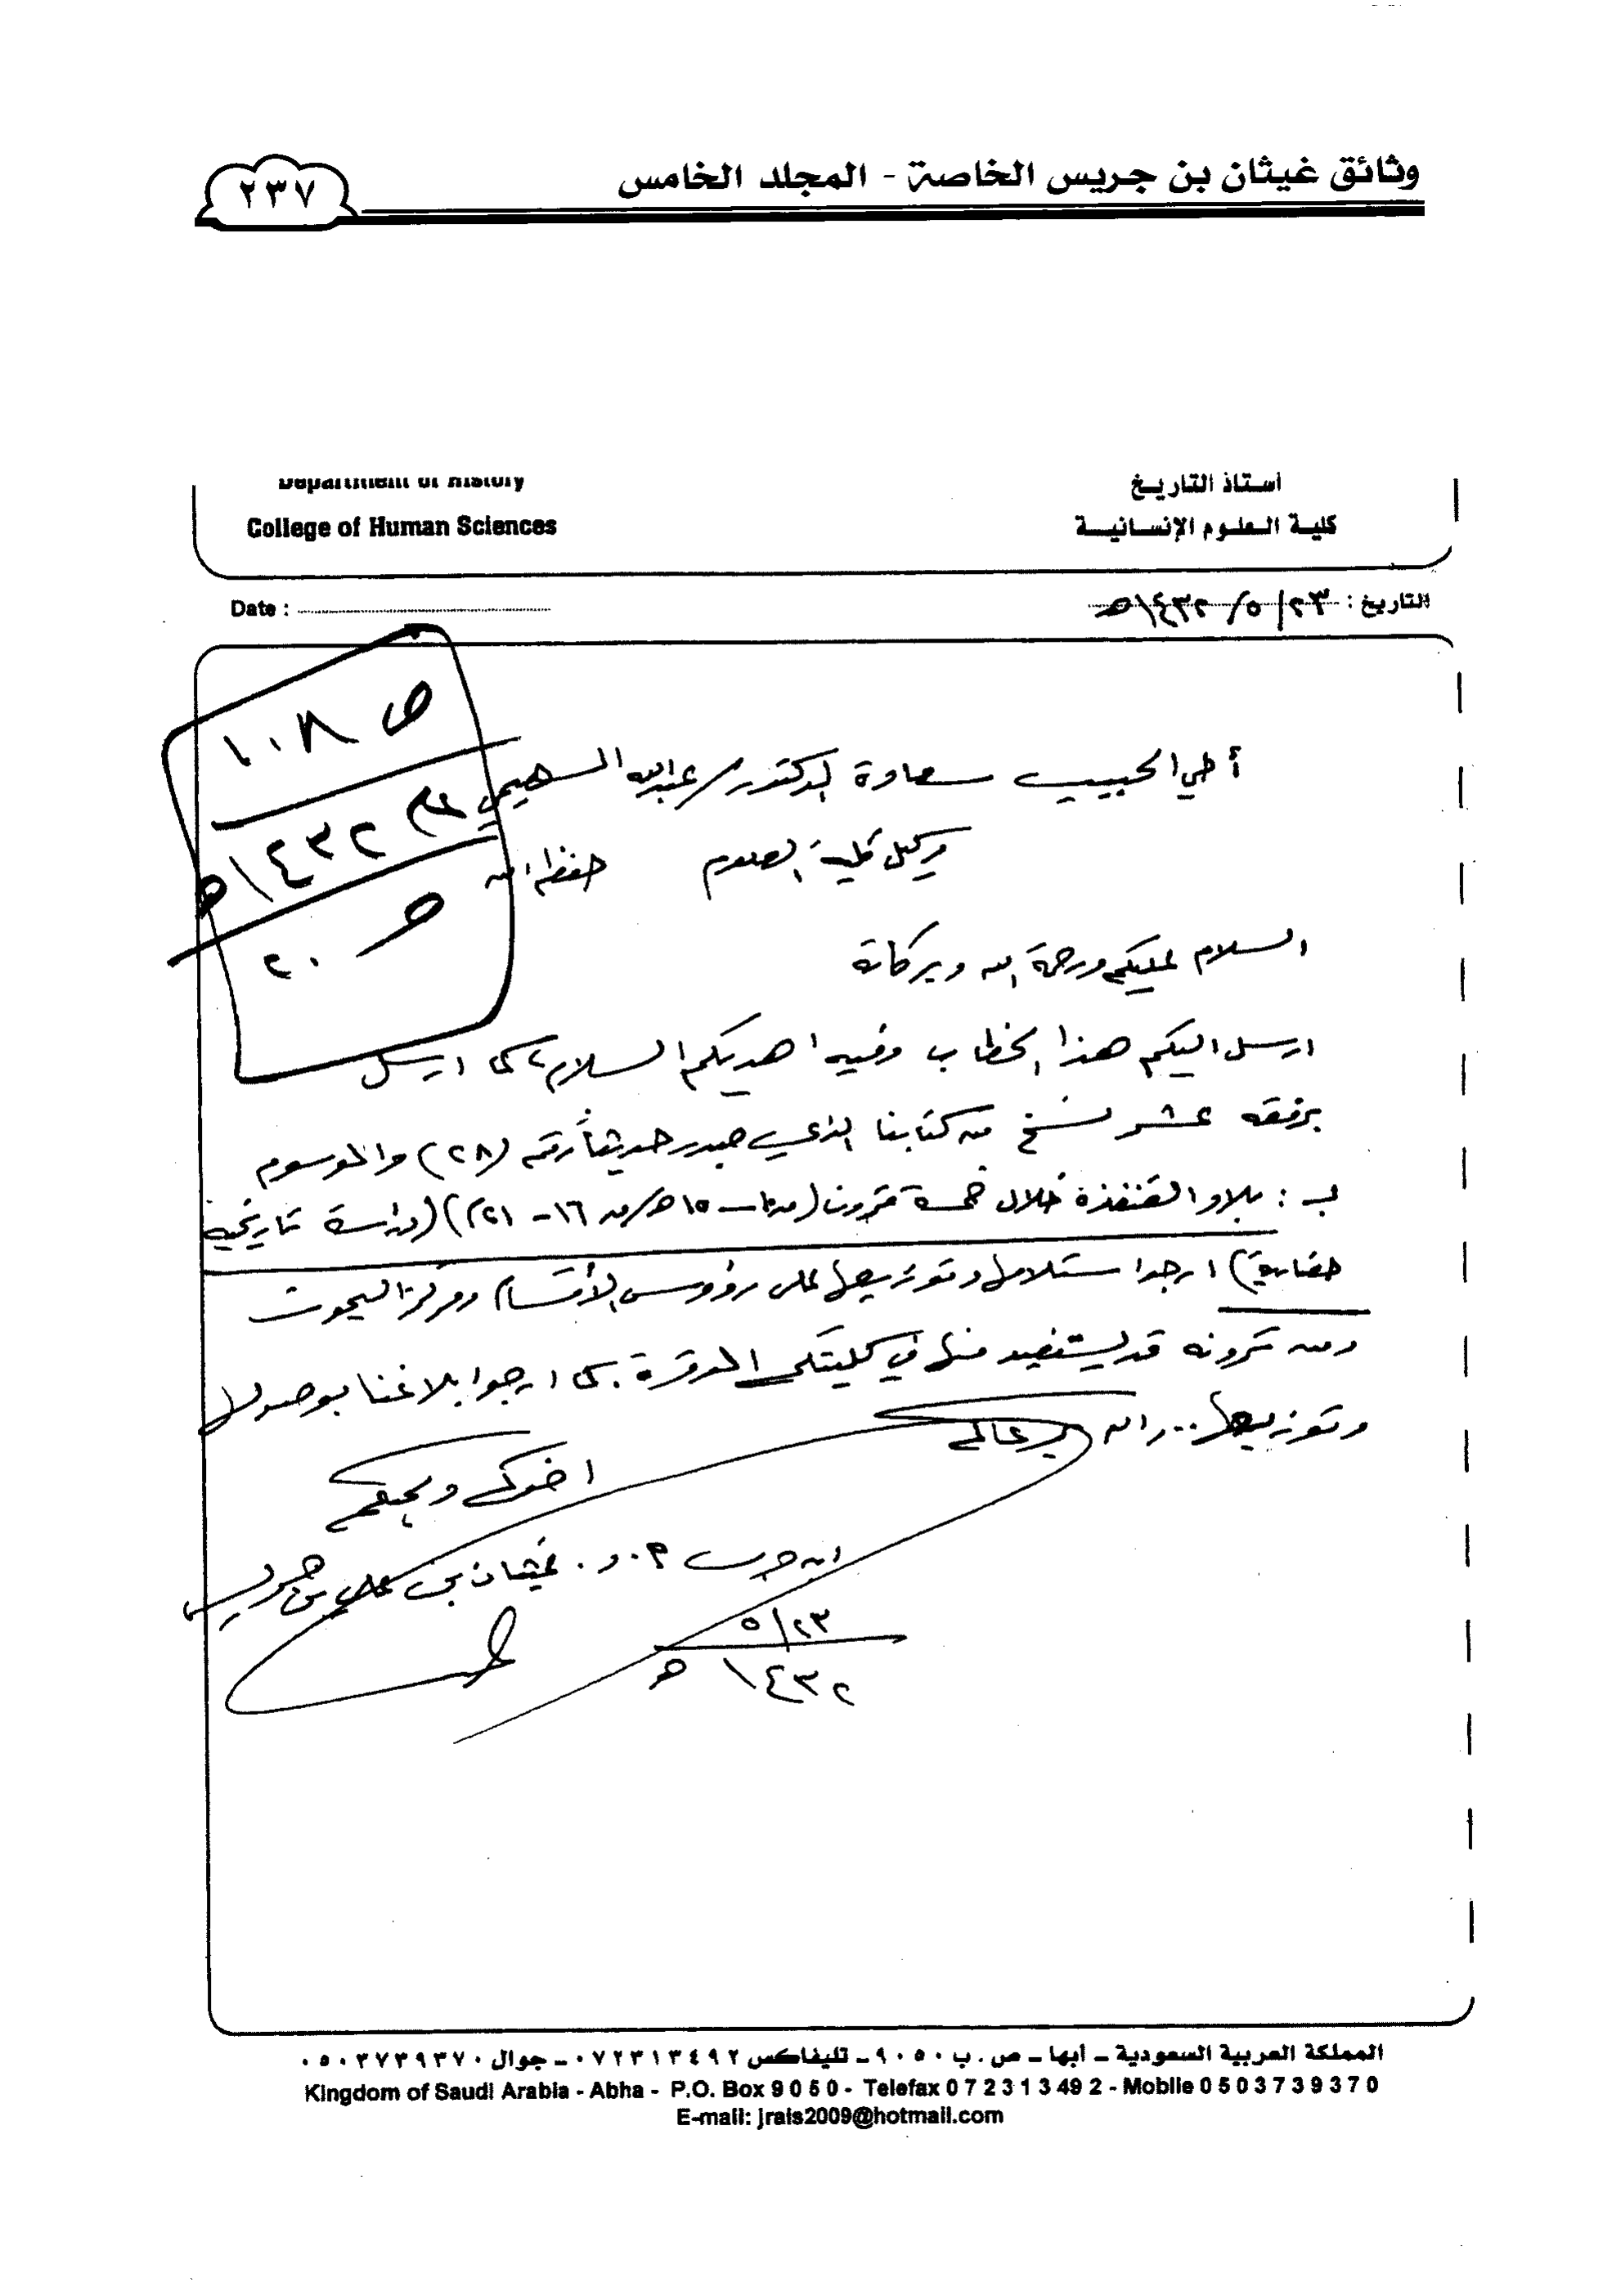 وثائق غيثان بن جريس الخاصة - المجلد الخامس
٢٣٧
أستاذ التاريخ
كلية العلوم الإنسانية
Department of History
College of Human Sciences
التاريخ : ٢٣/ ٥/ ١٤٣٢هـ
Date :
ص ١٠٨
عام ١٤٣٢هـ
٢٠
أخي الحبيب سعادة الدكتور/ عبدالله السهيمي
وكيل كلية العلوم حفظه الله
السلام عليكم ورحمة الله وبركاته
ارسل اليكم هذا الخطاب وفيه اهديكم السلام، كما ارسل
برفقه عشر نسخ من كتابنا الذي صدر حديثاً رقم (٢٨) والموسوم
بـ : بلاد القنفذة خلال خمسة قرون (ق١٠ـ ١٥هـ/ق ١٦- ٢١م) (دراسة تاريخية
حضارية) ارجوا استلامها وتوزيعها على رؤوس الأقسام ومركز البحوث
ومن ترونه قد يستفيد منها في كليتكم الموقرة . كما ارجوا بلاغنا بوصولها
وتوزيعها .. والله يرعاكم
اخوكم ومحبكم
ابن جريس أ. د. غيثان بن علي بن جريس
٢٣/ ٥
١٤٣٢ هـ
المملكة العربية السعودية ـ أبها ـ ص . ب ٩٠٥٠ ـ تليفاكس ٠٧٢٣١٣٤٩٢ ـ جوال ٠٥٠٣٧٣٩٣٧٠
Kingdom of Saudi Arabia - Abha - P.O. Box 9 0 5 0 - Telefax 0 7 2 3 1 3 4 9 2 - Mobile 0 5 0 3 7 3 9 3 7 0
E-mail: jrais2009@hotmail.com